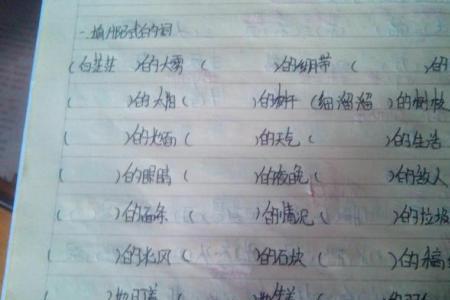 一.填ABB式的词
(白茫茫)的大雾( )的绷带( )的
( )的太阳( )的树干(细溜溜)的树枝
( )的火焰( )的天气( )的生活
( )的眼睛( )的夜晚( )的敌人
( )的石条( )的情况( )的垃圾
( )的北风( )的石块( )的